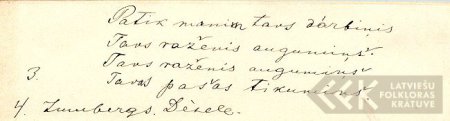 Patik manim tavs dārbiņis
Tavs raženis augumiņš.
Tavs raženis augumiņš
3. Tavas pašas tikumiņš.
4. Lumbergs. Dēsele.
LATVIEŠU
FOLKLORAS
KRĀTUVE